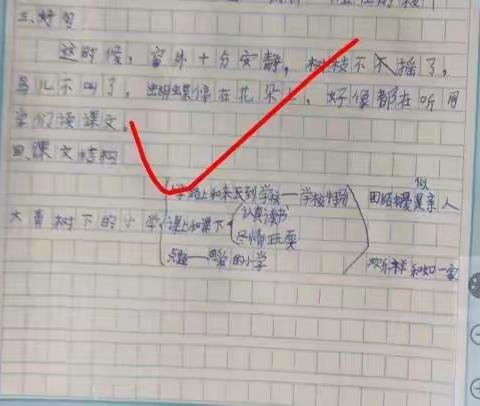 三、好句
这时候，窗外十分安静，树枝不摇了，
鸟儿不叫了，蝴蝶停在花朵上，好像都在听同
学们读课文。
四、课文结构
学路上和来到学校——学校特别 团结 似亲人
大青树下的小学 课上和课下 认真读书
尽情玩耍
点题—— 的小学 欢乐 和如一家